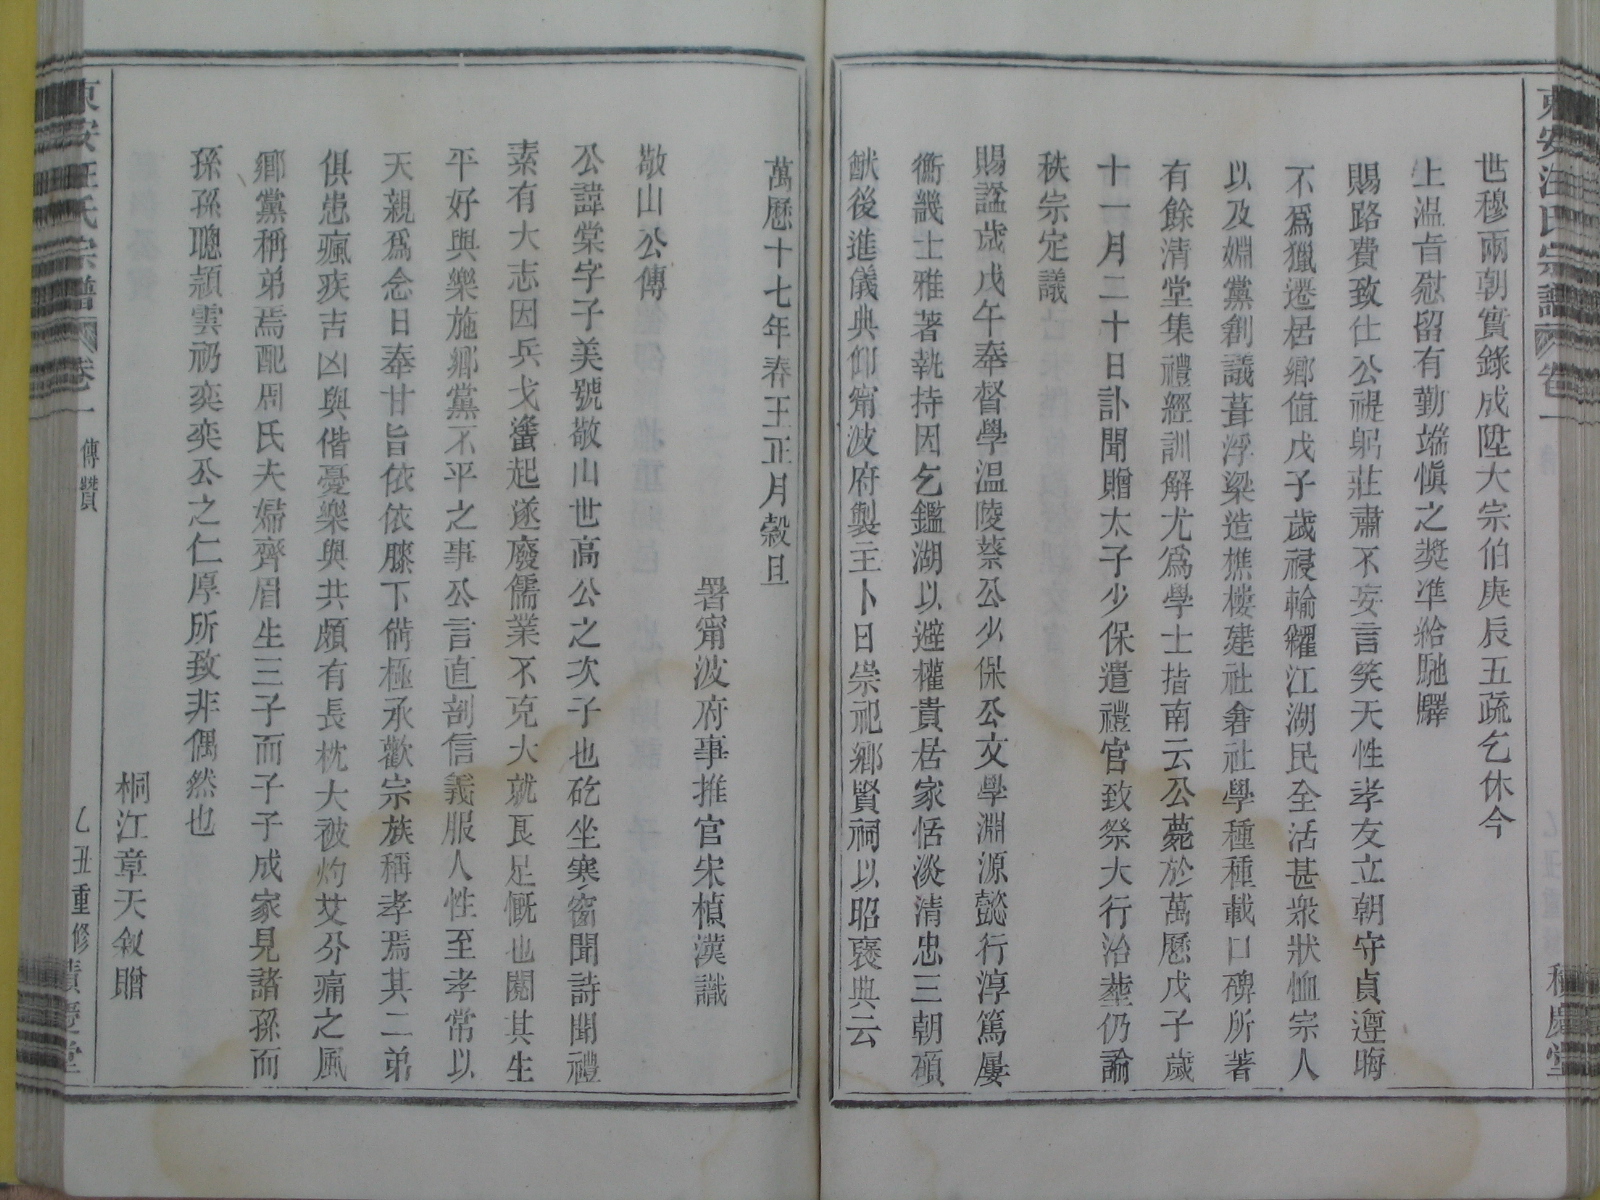 東安汪氏宗譜 卷一
積慶堂
世穆兩朝實錄成陞大宗伯庚辰五疏乞休今
上温旨慰留有勤端慎之奬凖給馳驛
賜路費致仕公禔躬莊肅不妄言笑天性孝友立朝守貞遵晦
不爲獵遷居鄉值戊子歲祲輸糶江湖民全活甚衆狀恤宗人
以及婣黨創議葺浮梁造樵樓建社倉社學種種載口碑所著
有餘清堂集禮經訓解尤爲學士指南云公薨於萬歷戊子歲
十一月二十日訃聞贈太子少保遣禮官致祭大行治塟仍諭
秩宗定議
賜諡歲戊午奉督學温陵蔡公以保公文學淵源懿行淳篤屢
衡畿士雅著執持因乞鑑湖以避權貴居家恬淡清忠三朝碩
猷後進儀典仰甯波府製主卜日崇祀鄉賢祠以昭褒典云
萬歷十七年春王正月榖旦
署甯波府事推官宋楨漢識
敬山公傳
公諱棠字子美號敬山世高公之次子也矻坐寒窗聞詩聞禮
素有大志因兵戈蠭起遂廢儒業不克大就良足慨也閱其生
平好與樂施鄉黨不平之事公言直剖信義服人性至孝常以
天親爲念日奉甘旨依依膝下備極承歡宗族稱孝焉其二弟
俱患瘋疾吉凶與偕憂樂與共頗有長枕大被灼艾分痛之風
鄉黨稱弟焉配周氏夫婦齊眉生三子而子子成家見諸孫而
孫孫聰頴雲礽奕奕公之仁厚所致非偶然也
桐江章天敘贈
東安汪氏宗譜 卷一 傳贊 乙丑重修 積慶堂